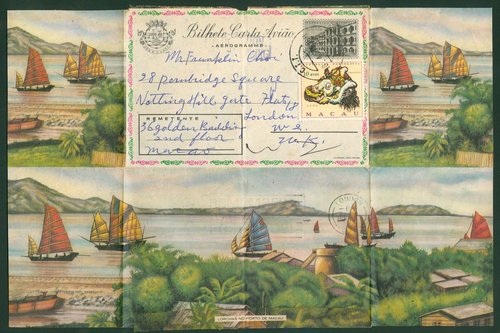 Bilhete-Carta-Avião
AEROGRAMME
Mr Franklin Choi
28 pembridge Square
Nottinghill gate Flat 4
London
W2.
U.K.
MACAU
REMETENTE
36 golden Building
2nd floor
Macao
LORCHAS NO PORTO DE MACAU